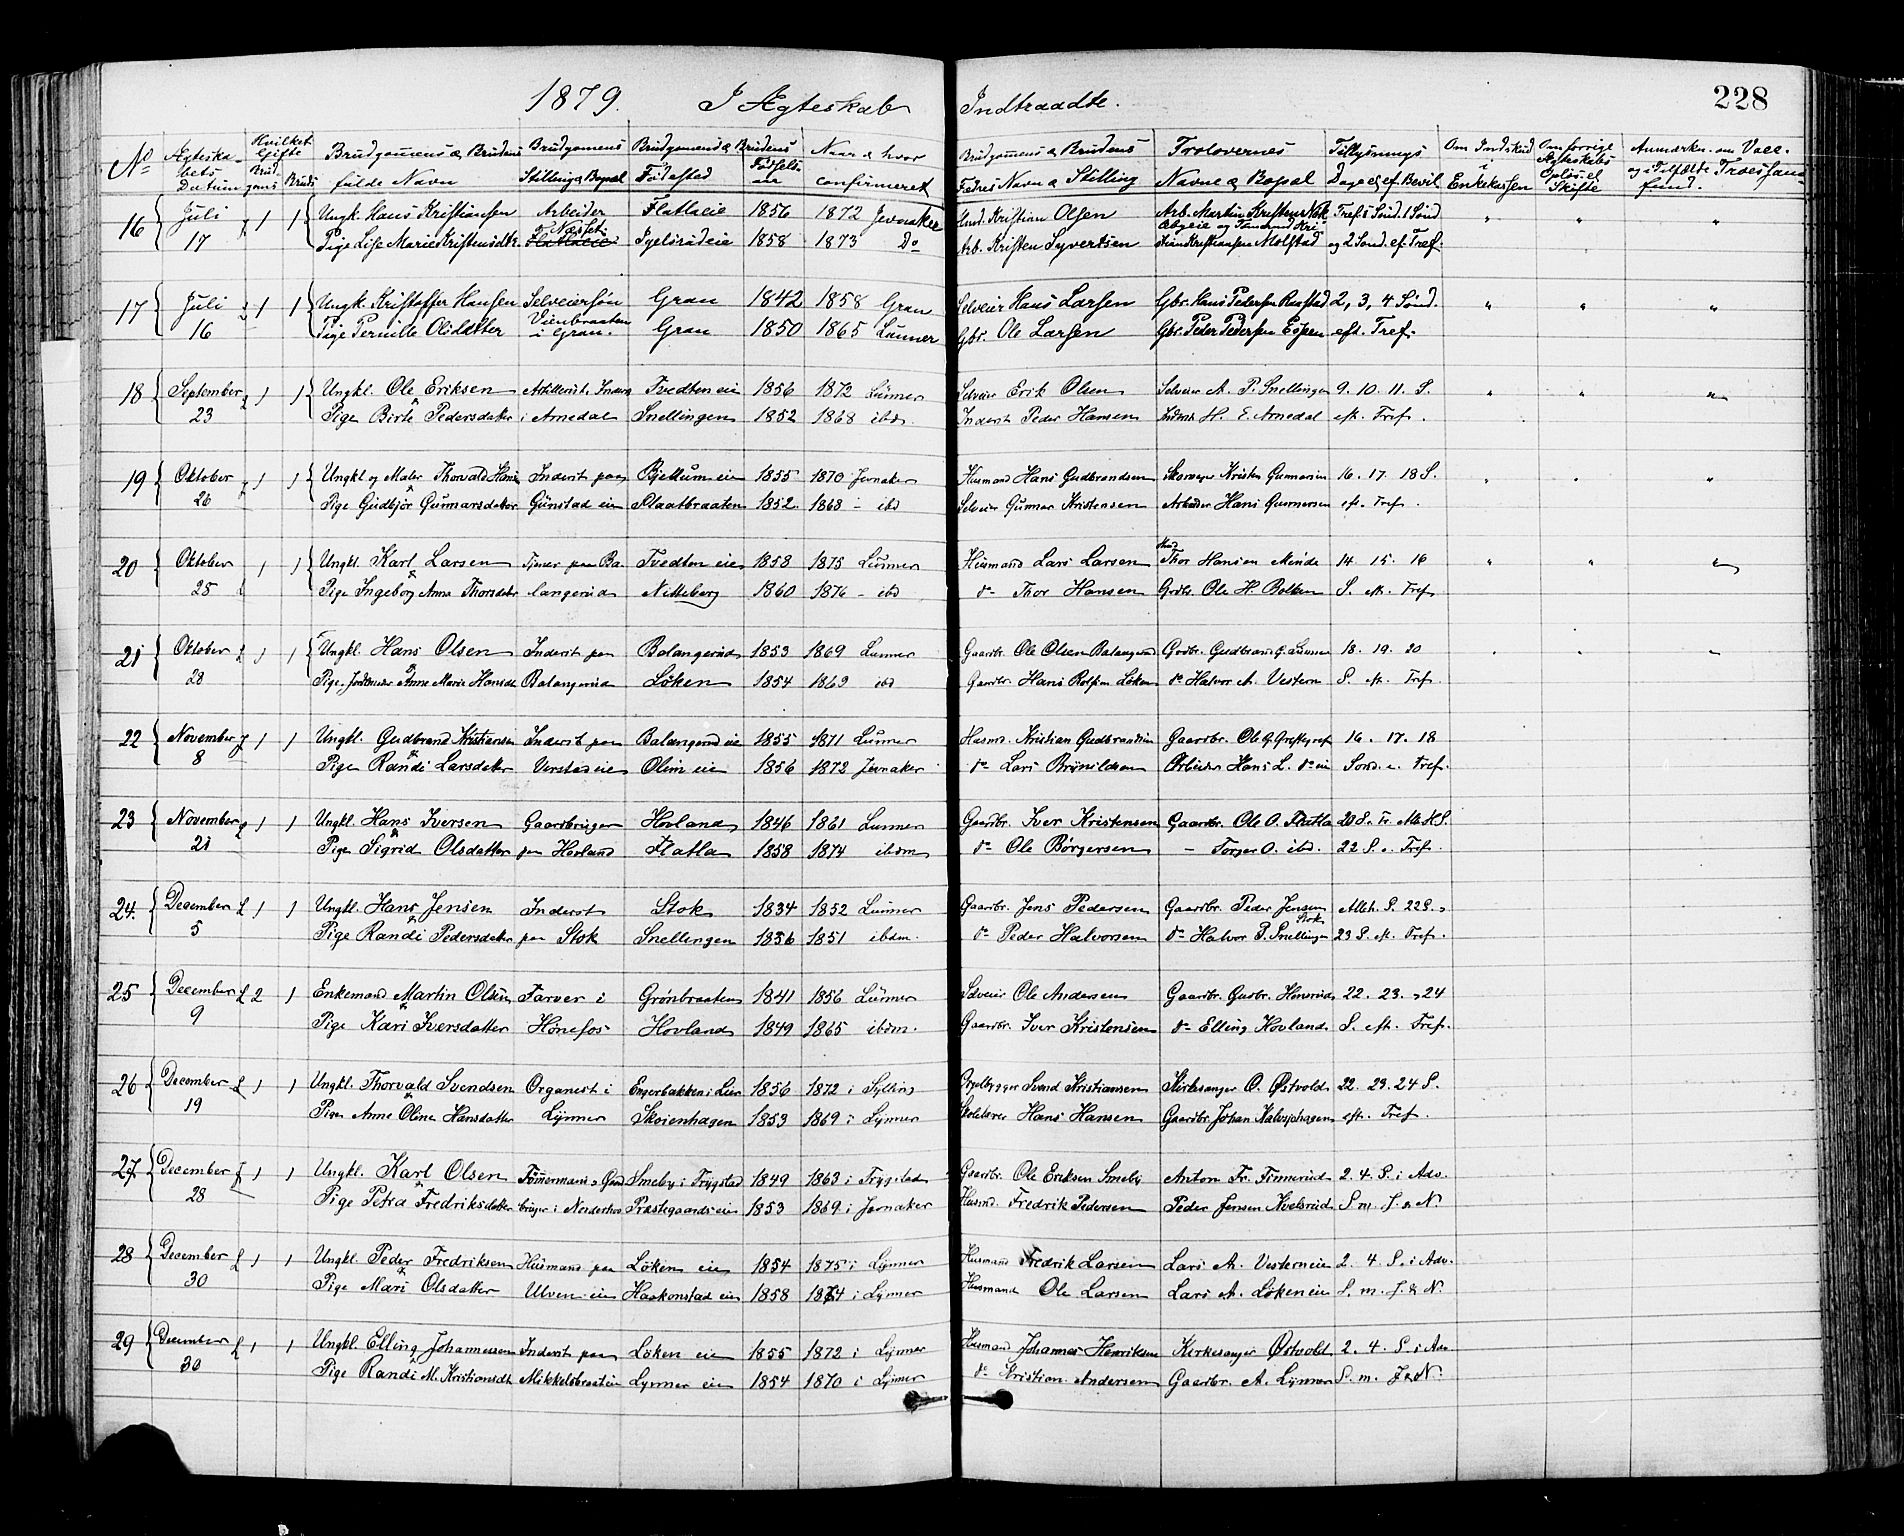 1879. I Ægteskab Indtraadte. 228
No Ægteska- bets Datum Hvilket Gifte Brud- goms Bruds Brudgommens & Brudens fulde Navn Brudgomens Stilling & Bopæl Brudgomens & Brudens Fødested Fødsels- aar Naar & hvor confirmeret Brudgommens & Brudens Fædres Navn & Stilling Trolovernes Navne & Bopæl Tillysnings Dage ef. Bevil Om Indskud i Enkekassen Om forrige Ægteskabs Opløs. el Skifte Anmærkn. om Vacc. og i Tilfælde Troessam- fund.
16 Juli 1 1 Ungk. Hans Kristiansen Arbeider Flatlaeie 1856 1872 Jevnaker Husd. Kristian Olsen Arb. Martin Tref. Sønd. " " "
17 Pige Lise Marie Kristensdtr. Næset 1858 1873 Do Arb. Kristen Syvertsen Kristiansen Molstad og 2 Sønd. ef. Tref.
17 Juli 1 1 Ungk. Kristoffer Hansen Selveiersøn Gran 1842 1858 Gran Selveier Hans Larsen Gbr. Hans Pedersen Raastad 2, 3, 4 Sønd. " " "
16 Pige Pernille Olsdatter i Gran. Gran 1850 1865 Lunner Gbr. Ole Larsen Gbr. Peder Pedersen Espen eft. Tref.
18 September 1 1 Ungkl. Ole Eriksen Artillerist, Inderst Tvedten eie 1856 1872 Lunner Selveier Erik Olsen Selveier A. P. Snellingen 9. 10. 11. S. " " "
23 Pige Birte Pedersdatter i Arnedal Snellingen 1852 1868 ibd. Inderst Peder Hansen Inderst H. E. Arnedal eft. Tref.
19 Oktober 1 1 Ungkl og Maler Thorvald Hans Inderst paa Bjellum eie 1855 1870 Jevnaker Husmand Hans Gudbrandsen Kristen Gunnarsen 16. 17. 18 S. " " "
26 Pige Gudbjør Gunnarsdatter Günstad eie Flaatbraaten 1852 1868 - ibd Selveier Gunnar Kristensen Arbeider Hans Gunnersen eft. Tref.
20 Oktober 1 1 Ungkl. Karl Larsen Tjener paa Ba- Tvedten eie 1858 1875 Lunner Husmand Lars Larsen Thor Hansen Mende 14 15. 16 " " "
25 Pige Ingeborg Anna Thorsdatr langerud Nitteberg 1860 1876 - ibd do Thor Hansen Gaardbr. Ole H. Bolken S. eft. Tref.
21 Oktober 1 1 Ungkl. Hans Olsen Inderst paa Balangerud 1853 1869 Lunner Gaardbr. Ole Olsen Balangerud Gaardbr. Gudbrand G. 18. 19. 20 " " "
28 Pige, Jordemoder Anne Marie Hansdtr Balangerud Løken 1854 1869 ibd Gaardbr. Hans Løken do Halvor A. Vestern S. eft. Tref.
22 November 1 1 Ungkl. Gudbrand Kristiansen Inderst paa Balangerud eie 1855 1871 Lunner Husmd. Kristian Gudbrandsen Gaardbr. Ole G. 16. 17. 18
8 Pige Randi Larsdatter Verstad eie Olim eie 1856 1872 Jevnaker do Lars Brynildsen Arbeider Hans L. do eie Sønd. e. Tref.
23 November 1 1 Ungkl. Hans Iversen Gaardbruger Hovland 1846 1861 Lunner Gaardbr. Iver Kristensen Gaardbr. Ole O. Flatla 20 S. Tr. Alle H. S.
21 Pige Sigrid Olsdatter paa Hovland Flatla 1858 1874 ibdm do Ole Børgersen - Torger O. ibd. 22 S. e. Tref.
24. December 1 1 Ungkl. Hans Jensen Inderst Stok 1834 1852 Lunner Gaardbr. Jens Pedersen Gaardbr. Peder Jensen Stok Alleh. S. 22 S.
5 Pige Randi Pedersdatter paa Stok Snellingen 1836 1851 ibdm. do Peder Halvorsen do Halvor P. Snellingen 23 S. eft. Tref.
25 December 2 1 Enkemand Martin Olsen Farver i Grønbraaten 1841 1856 Lunner Selveier Ole Andersen Gaardbr. Gudbr. 22. 23. 24
9 Pige Kari Iversdatter Hønefos Hovland 1849 1865 ibdm. Gaardbr. Iver Kristensen do Elling Hovland S. eft. Tref.
26 December 1 1 Ungkl. Thorvald Svendsen Organist i Engerbakken i Lier 1856 1872 i Sylling Orgelbygger Svend Kristiansen Kirkesanger O. Østvold 22. 23. 24 S.
19 Pige Anne Oline Hansdatter Lynner Skoienhagen 1853 1869 i Lynner Skolelærer Hans Hansen Gaardbr. Johan Kalvsjøhagen eft. Tref.
27. December 1 1 Ungkl. Karl Olsen Tømmermand & Gaard Smeby i Trygstad 1849 1863 i Trygstad Gaardbr. Ole Eriksen Smeby Anton Fr. Finnerud 2. 4. S. i Adv.
28 Pige Petra Fredriksdatter bruger i Norderhov Præstegaards eie 1853 1869 i Jevnaker Husmd. Fredrik Pedersen Peder Jensen S. m. J. & N.
28 December 1 1 Ungkl. Peder Fredriksen Husmand paa Løken eie 1854 1875 i Lynner Husmand Fredrik Larsen Lars A. Vestern eie 2. 4. S. i Adv.
30 Pige Mari Olsdatter Ulven eie Haakonstad eie 1858 1874 i Lynner Husmand Ole Larsen Lars A. Løken eie S. m. J. & N.
29 December 1 1 Ungkl. Elling Johannessen Inderst paa Løken eie 1855 1872 i Lynner Husmand Johannes Henriksen Kirkesanger Østvold 2. 4. S. i Adv
30 Pige Randi M. Kristiansdtr Mikkelsbraaten Lynner eie 1854 1870 i Lynner do Kristian Andersen Gaardbr. A. Lynner S. m. J. & N.